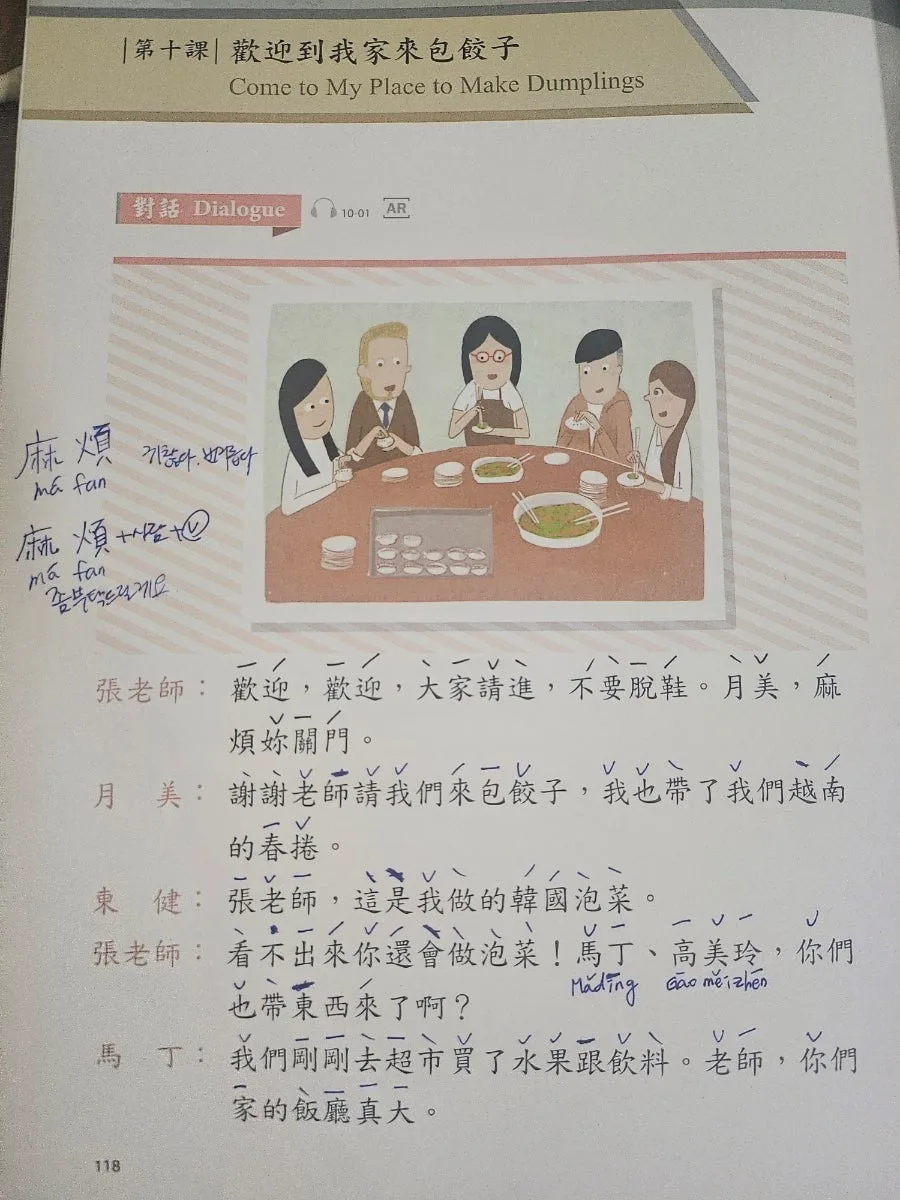 |第十課| 歡迎到我家來包餃子
Come to My Place to Make Dumplings
對話 Dialogue 10-01 AR
麻煩 귀찮다. 번거롭다
má fan
麻煩+사람+V
má fan
좀부탁드릴게요
張老師：歡迎，歡迎，大家請進，不要脫鞋。月美，麻
煩妳關門。
月 美：謝謝老師請我們來包餃子，我也帶了我們越南
的春捲。
東 健：張老師，這是我做的韓國泡菜。
張老師：看不出來你還會做泡菜！馬丁、高美玲，你們
Mǎdīng Gāo měizhēn
也帶東西來了啊？
馬 丁：我們剛剛去超市買了水果跟飲料。老師，你們
家的飯廳真大。
118